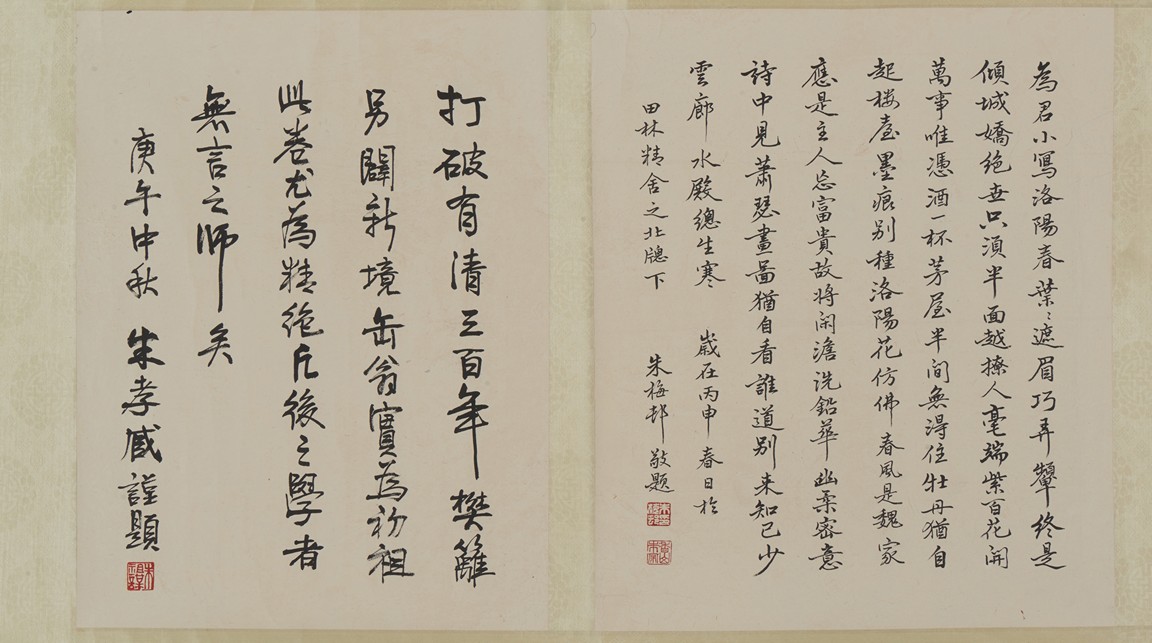 為君小寫洛陽春葉〻遮眉巧弄顰終是
傾城嬌絶世只須半面越撩人毫端紫百花開
萬事唯憑酒一杯茅屋半間無得住牡丹猶自
起楼臺墨痕別種洛陽花仿佛春風是魏家
應是主人忘富貴故將闲澹洗鉛華幽柔密意
詩中見蕭瑟畫啚猶自看誰道別来知已少
雲廊水殿總生寒 歲在丙申春日於
田林精舍之北牕下 朱梅邨敬題
打破有清三百年樊籬
另闢新境缶翁實為初祖
此卷尤為精絶凡後之學者
無言之師矣
庚午中秋 朱孝臧謹題